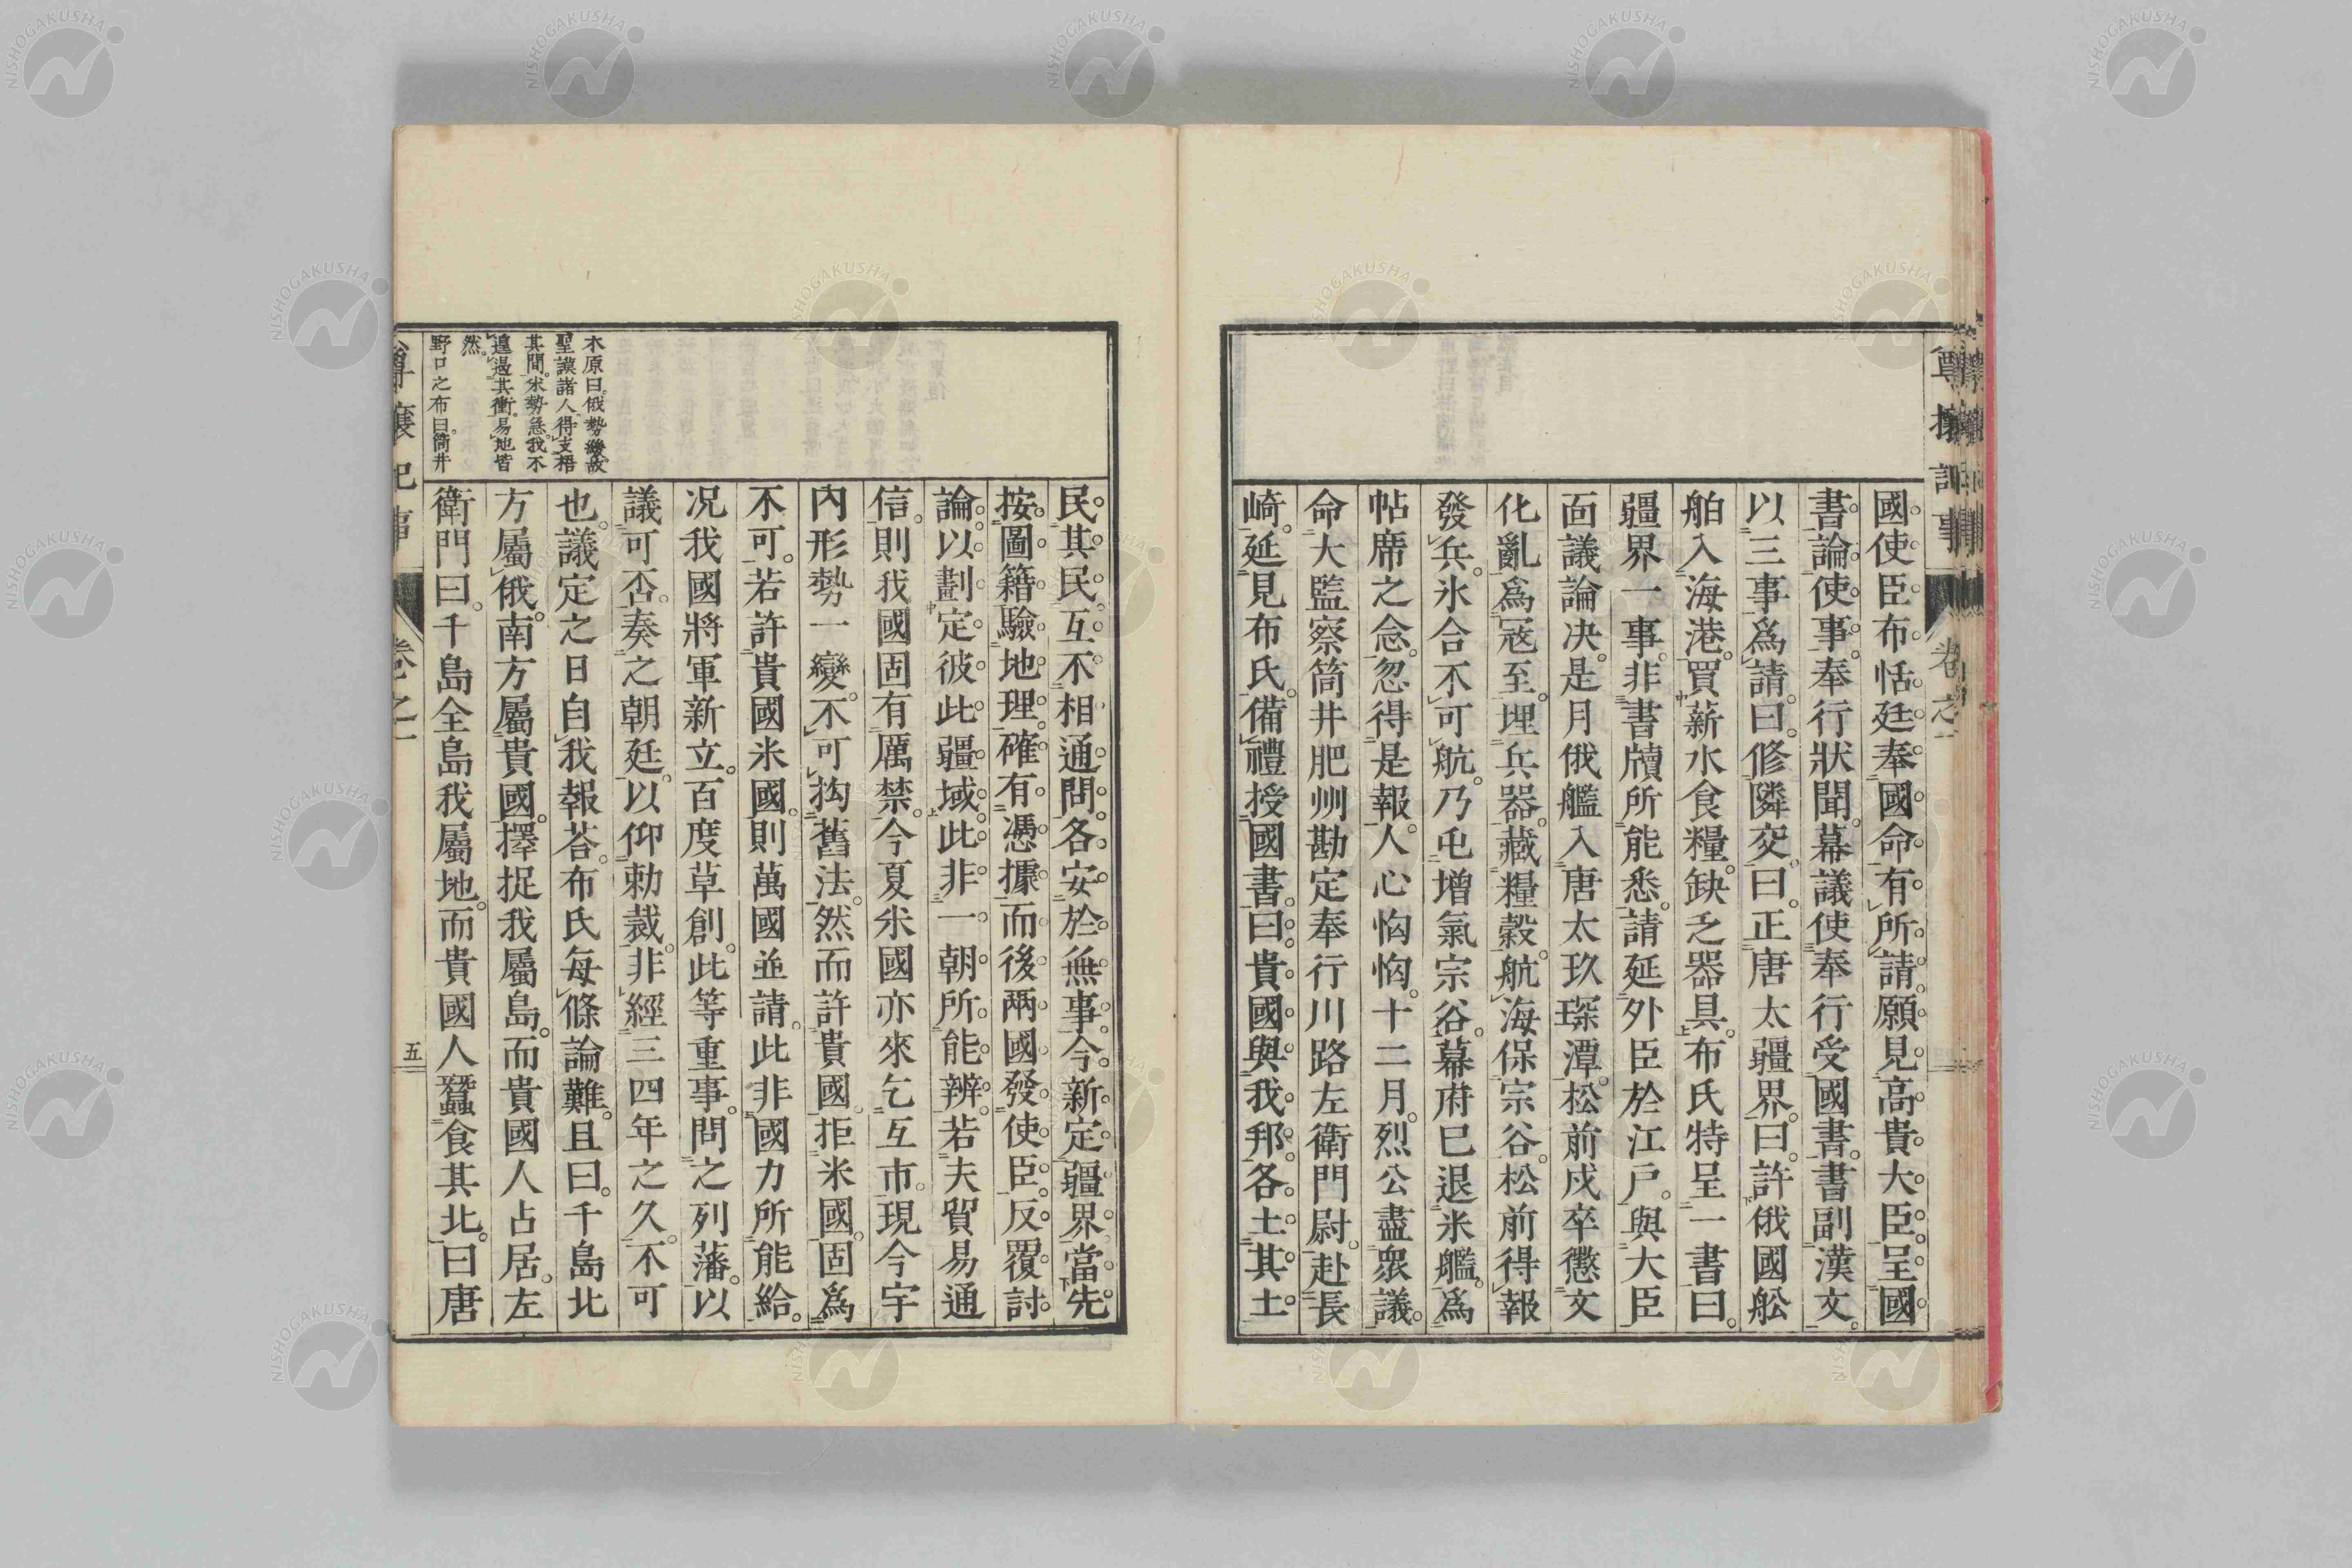 國使臣布恬廷奉國命有所請願見高貴大臣呈國
書論使事奉行狀聞幕議使奉行受國書書副漢文
以三事爲請曰修隣交曰正唐太疆界曰許俄國舩
舶入海港買薪水食糧缺乏器具布氏特呈一書曰
疆界一事非書牘所能悉請延外臣於江戶與大臣
面議論决是月俄艦入唐太玖琛潭松前戍卒懲文
化亂爲冦至埋兵器藏糧穀航海保宗谷松前得報
發兵氷合不可航乃屯增氣宗谷幕府已退米艦爲
帖席之念忽得是報人心恟恟十二月烈公盡衆議
命大監察筒井肥州勘定奉行川路左衛門尉赴長
崎延見布氏備禮授國書曰貴國與我邦各土其土
民其民互不相通問各安於無事今新定疆界當先
按圖籍驗地理確有憑據而後兩國發使臣反覆討
論以劃定彼此疆域此非一朝所能辨若夫貿易通
信則我國固有厲禁今夏米國亦來乞互市現今宇
內形勢一變不可拘舊法然而許貴國拒米國固爲
不可若許貴國米國則萬國並請此非國力所能給
况我國將軍新立百度草創此等重事問之列藩以
議可否奏之朝廷以仰勅裁非經三四年之久不可
也議定之日自我報荅布氏每條論難且曰千島北
方屬俄南方屬貴國擇捉我屬島而貴國人占居左
衛門曰千島全島我屬地而貴國人蠶食其北曰唐
木原曰俄勢緩故
聖謨諸人得支梧
其間米勢急我不
遑過其衝易地皆
然
野口之布曰筒井
尊攘記事
卷之一
五
NISHOGAKUSHA